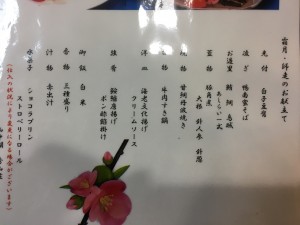 霜月・師走のお献立て
先付 白子豆腐
凌ぎ 鴨南蛮そば
お造里 鮪 鯛 烏賊
あしらい一式
蓋物 海老芋 大根 針人参 針葱
焼物 甘鯛丹波焼き
鍋物 牛肉すき鍋
洋皿 海老文化揚げ
クリームソース
強肴 鮟鱇唐揚げ
ポン酢餡掛け
御飯 白米
香物 三種盛り
汁物 赤出汁
水菓子 ショコラプリン
ストロベリーロール
(仕入の状況により変更になる場合がございます)